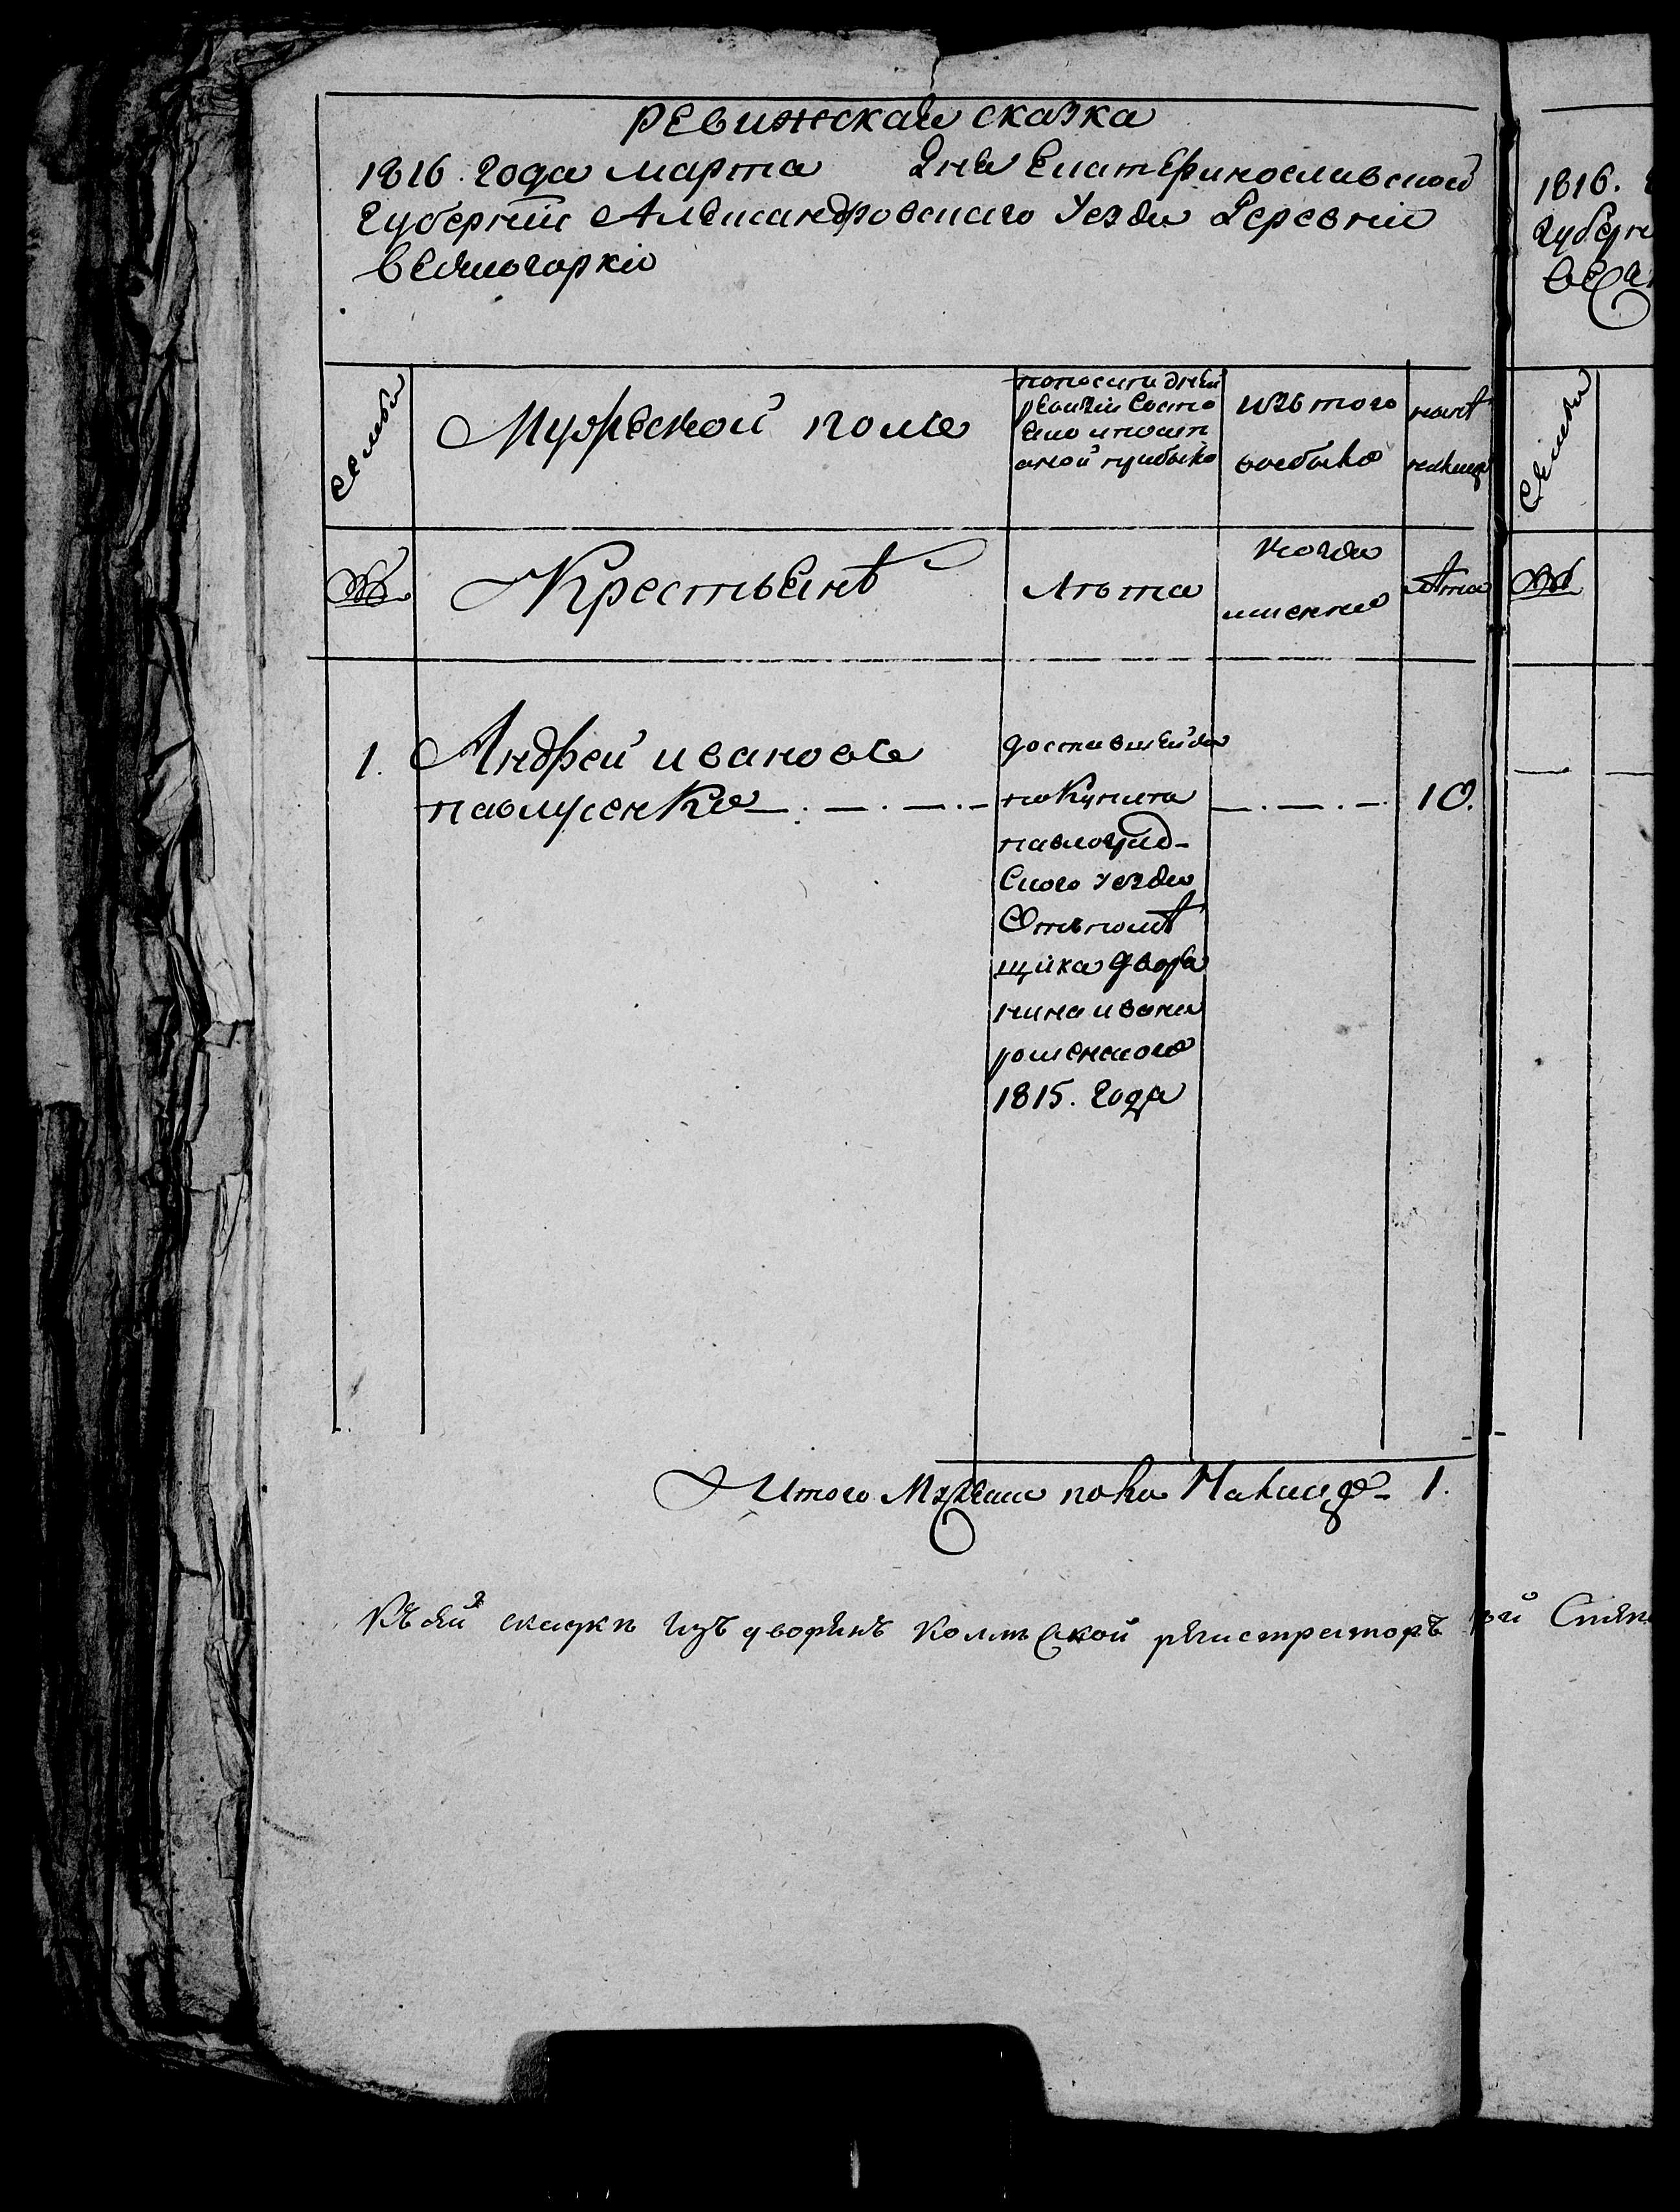 ревижская сказка
1816 года марта дня Екатеринославской
губернии Александровского уезда деревни
Семья
Мужеской полъ
попоследней
ревизии состо
яло и после
оной прибыло
изъ того
выбыло
ныне
налицо
№
Крестьянъ
лѣта
когда
именно
лѣта
1. Андрей ивановъ
павлусенко 10.
доставшейся
покупкѣ
павлоград-
ского уезда
отъ помѣ
щика дворя
нина ивана
1815. года
Итого мужеска пола налицо 1.
Къ сей скаскѣ изъ дворянъ колеской регистраторъ
1816.
губерн
Семья
№